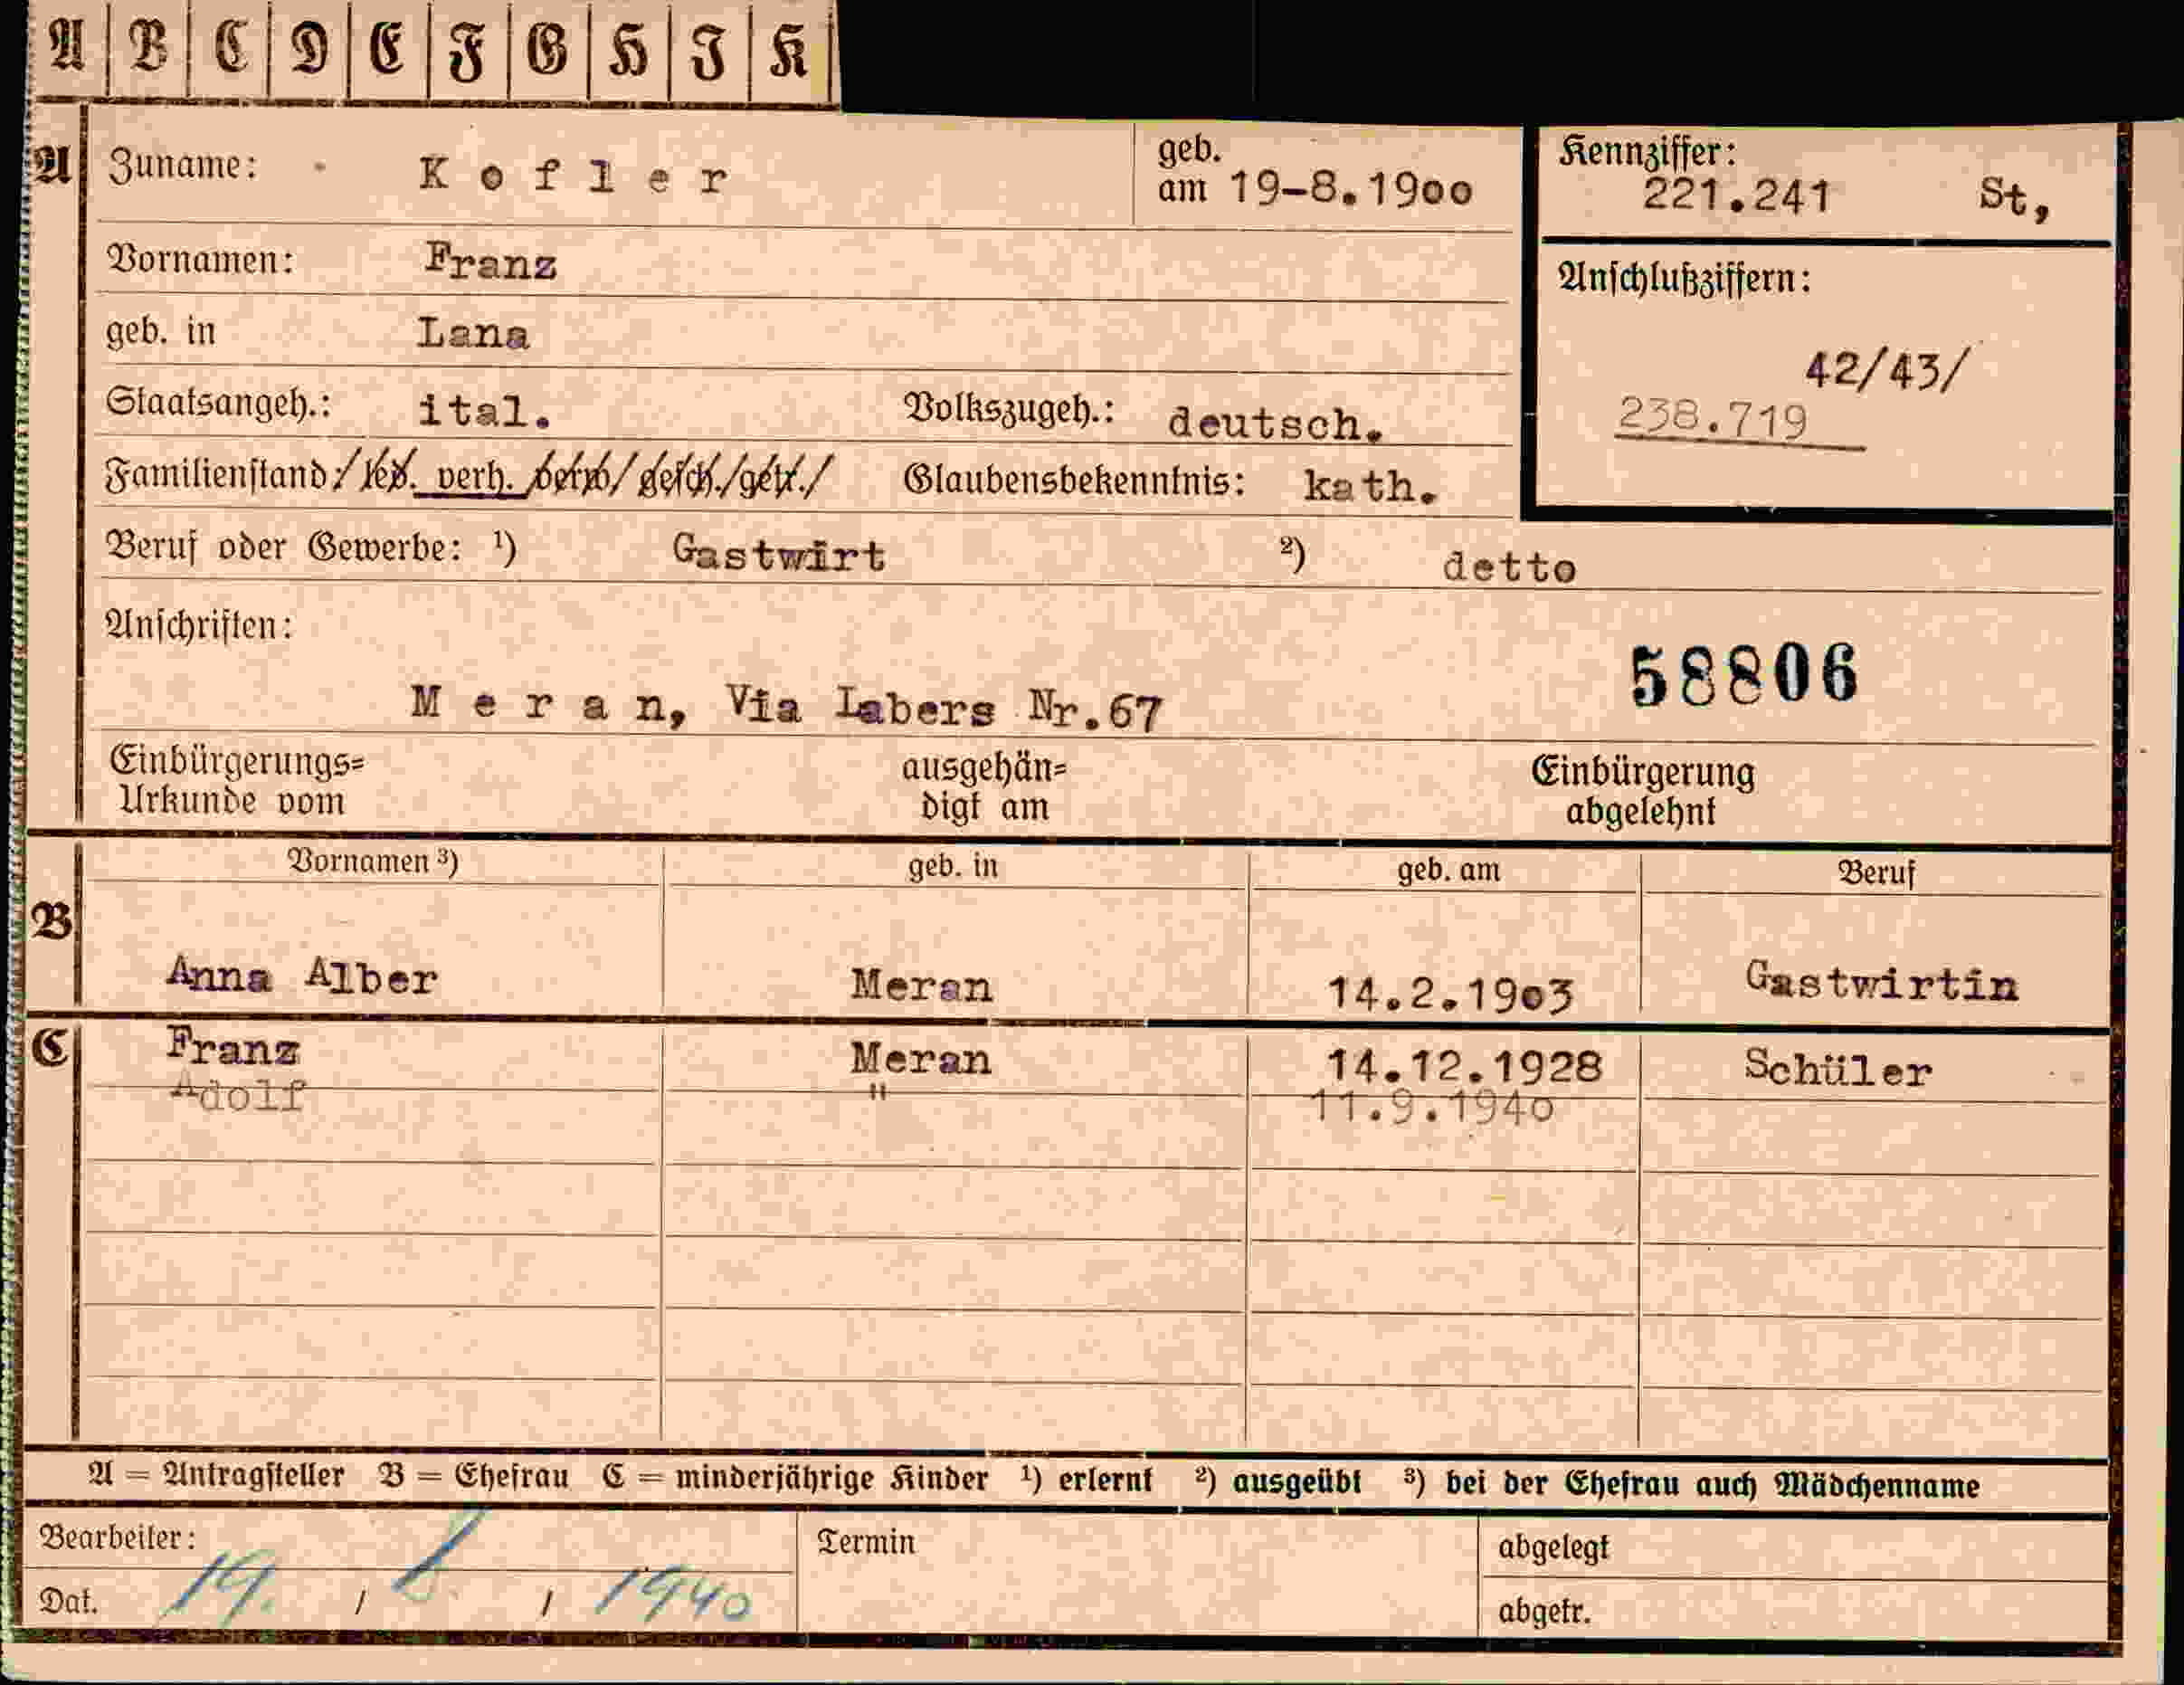 A B C D E F G H J K
A Zuname: Kofler geb. am 19-8.1900 Kennziffer: 221.241 St,
Vornamen: Franz
geb. in Lana
Anschlußziffern:
42/43/
238.719
Staatsangeh.: ital. Volkszugeh.: deutsch.
Familienstand:/led. verh. verw/gesch./getr./ Glaubensbekenntnis: kath.
Beruf oder Gewerbe: ¹) Gastwirt ²) detto
Anschriften:
58806
Meran, Via Labers Nr.67
Einbürgerungs=
Urkunde vom
ausgehän=
digt am
Einbürgerung
abgelehnt
Vornamen ³) geb. in geb. am Beruf
B Anna Alber Meran 14.2.1903 Gastwirtin
C Franz Meran 14.12.1928 Schüler
Adolf " 11.9.1940
A = Antragsteller B = Ehefrau C = minderjährige Kinder ¹) erlernt ²) ausgeübt ³) bei der Ehefrau auch Mädchenname
Bearbeiter:
Dat. 19. / / 1940
Termin
abgelegt
abgetr.